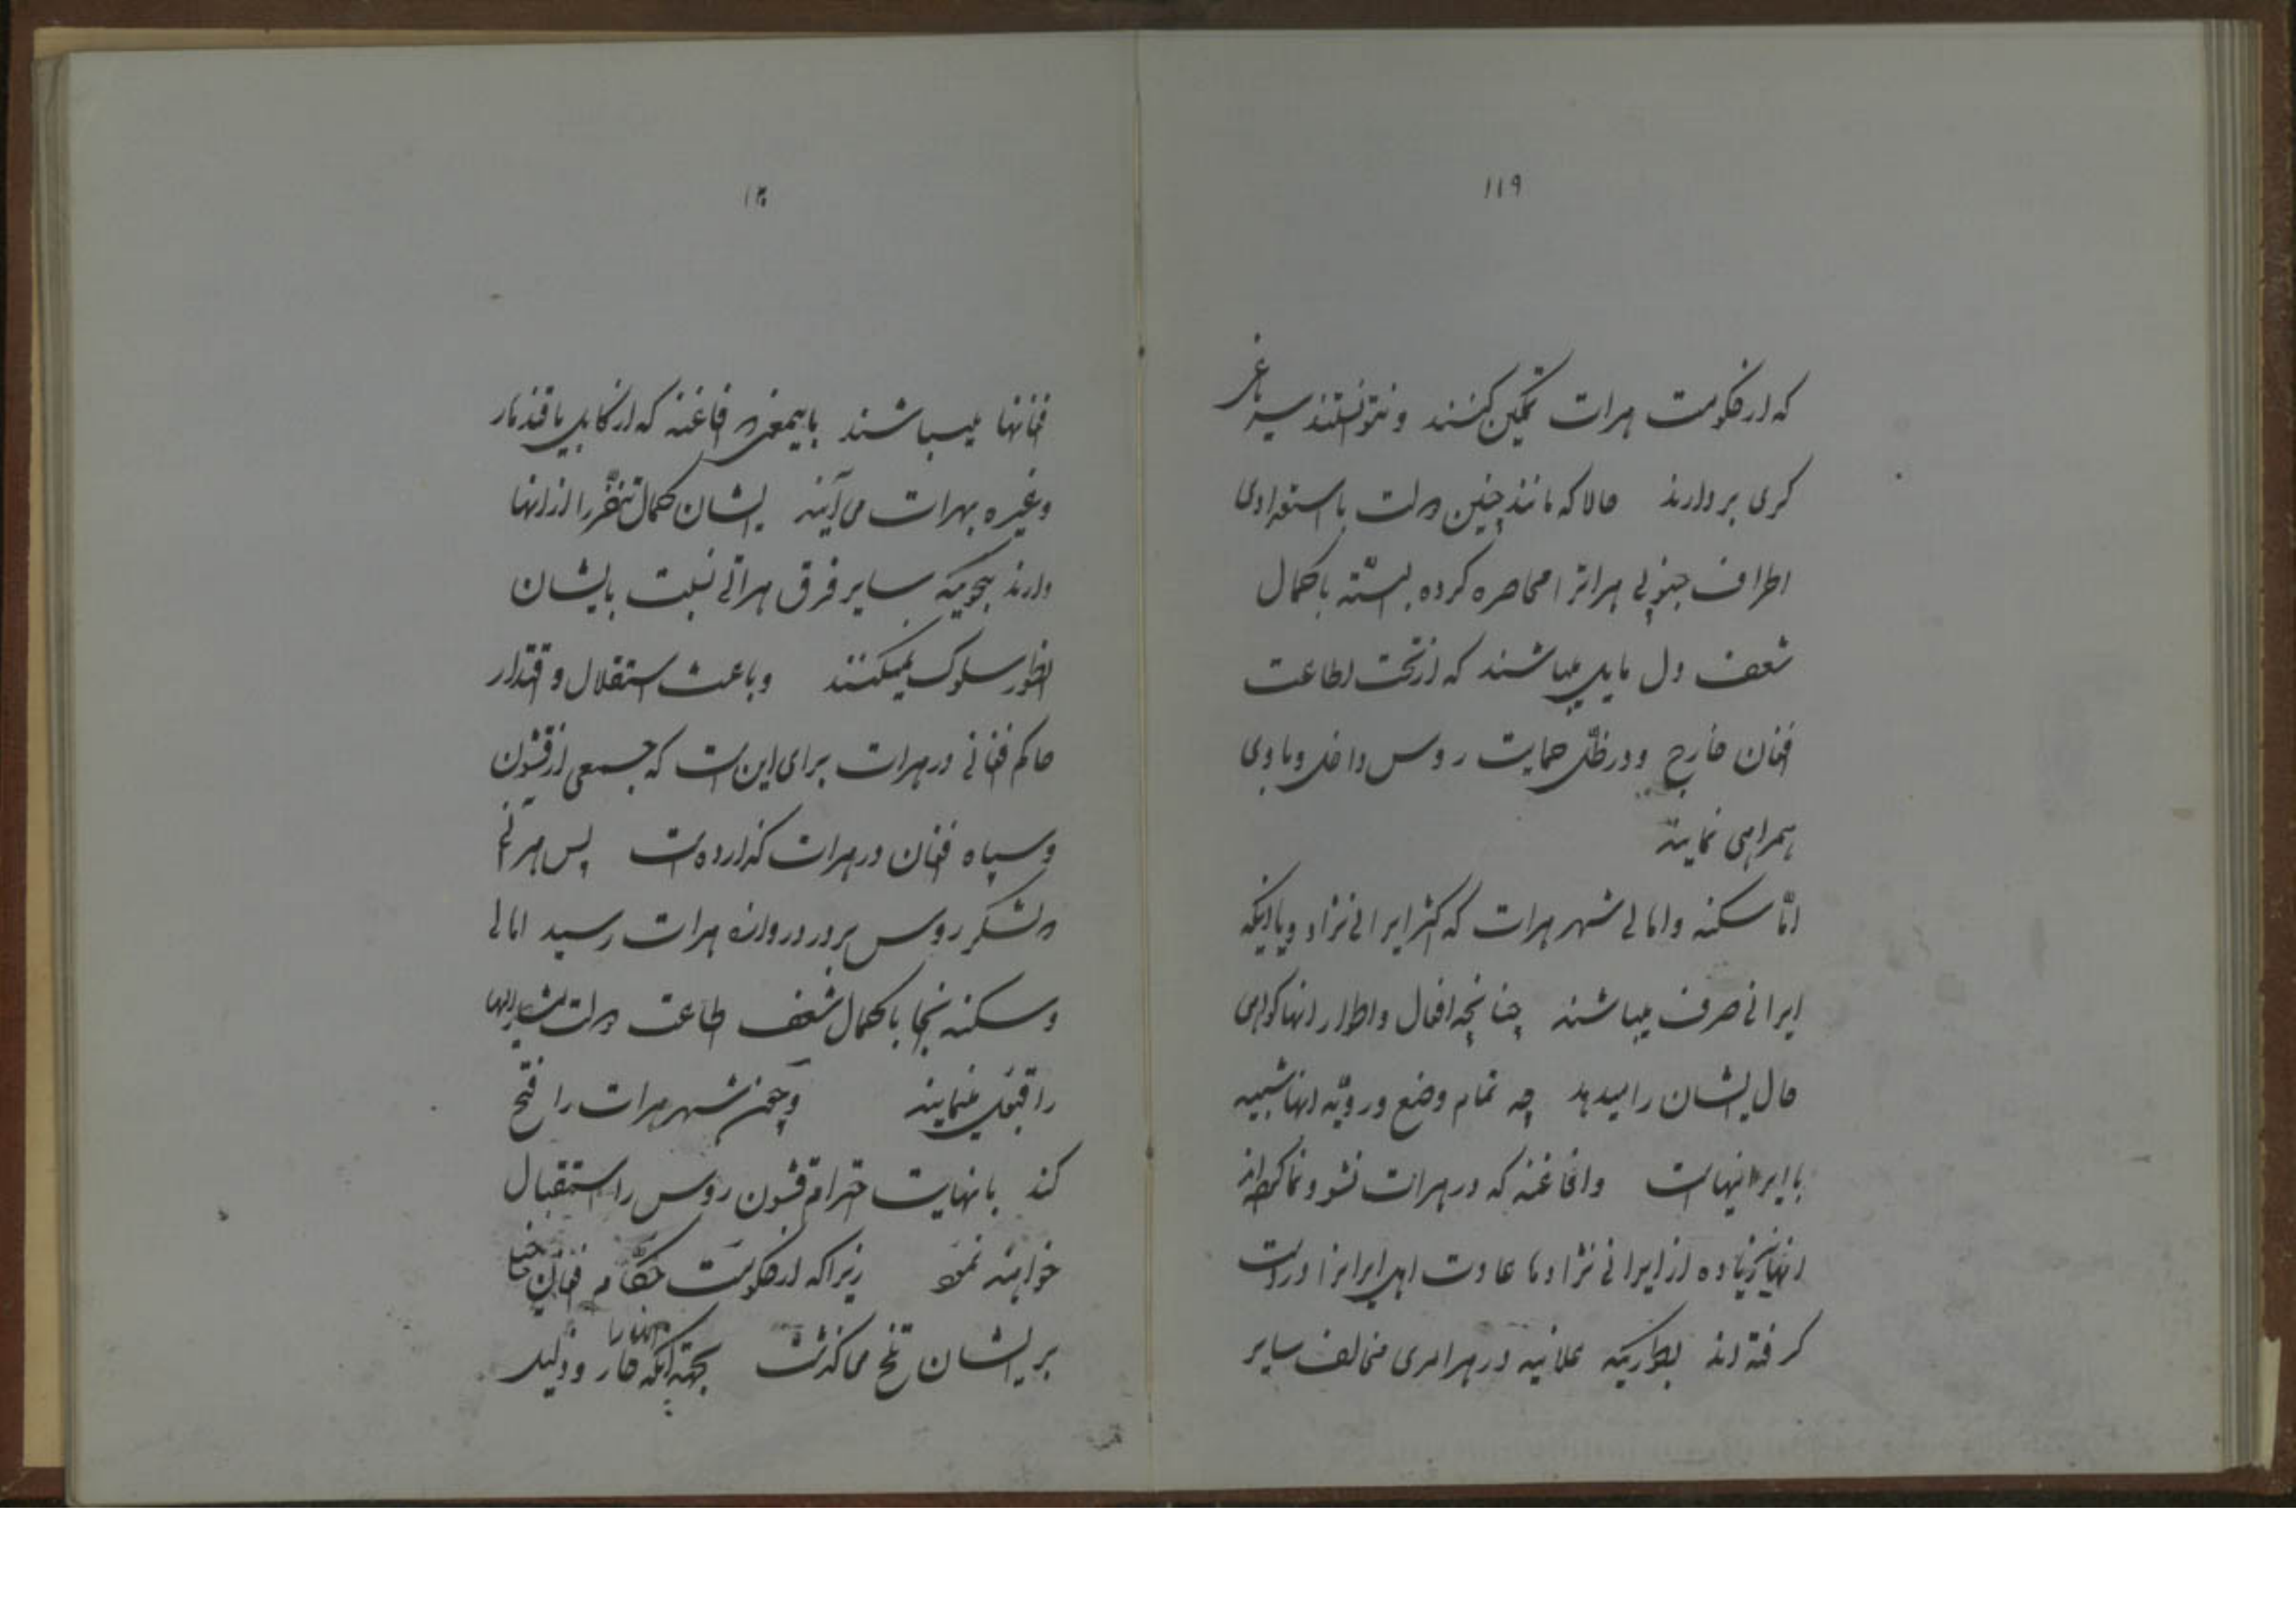 ۱۱۹
که از حکومت هرات تمکین کنند و نتوانستند سر یاغی
گری بردارند حالا که مانند چنین دولت با استعدادی
اطراف جنوبی هراترا محاصره کرده البته با کمال
شعف دل مایل میباشند که از تحت اطاعت
افغان خارج و در ظل حمایت روس داخل و با وی
همراهی نمایند
امّا سکنه و اهالی شهر هرات که اکثر ایرانی نژاد و یا اینکه
ایرانی صرف میباشند چنانچه افعال و اطوار انها گواهی
حال ایشان را میدهد چه تمام وضع و رویّه انها شبیه
با ایرانیهاست و افاغنه که در هرات نشو و نما کرده‌اند
انها نیز زیاده از ایرانی نژادها عادت اهل ایرانرا دوست
گرفته‌اند بطوریکه علانیه در هر امری مخالف سایر
۱۲۰
افغانها میباشند باینمعنی افاغنه که از کابل یا قندهار
و غیره بهرات می‌آیند ایشان کمال تنفّر را از انها
دارند بنحویکه سایر فرق هراتی نسبت بایشان
انطور سلوک نمیکنند و باعث استقلال و اقتدار
حاکم افغانی در هرات برای این است که جمعی از قشون
و سپاه افغان در هرات گذارده است پس هر آنی
که لشکر روس بر در دروازه هرات رسید اهالی
و سکنه آنجا با کمال شعف اطاعت دولت مشارالیها
را قبول مینمایند و چون شهر هرات را فتح
کند با نهایت احترام قشون روس را استقبال
خواهند نمود زیرا که از حکومت حکّام افغان
بر ایشان تلخ می‌گذشت بجهة اینکه انها را خار و ذلیل